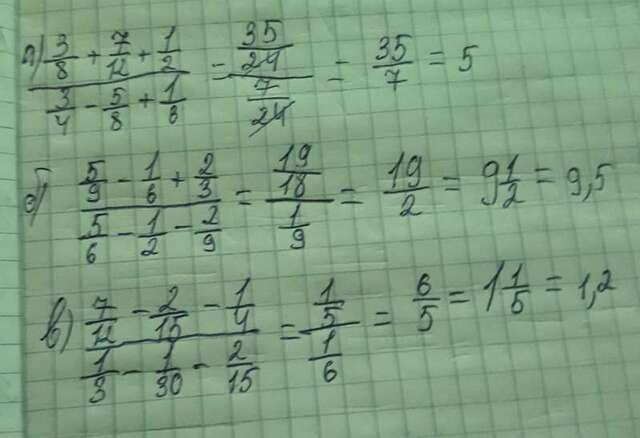 а) (3/8 + 7/12 + 1/2)/(3/4 - 5/8 + 1/6) = (35/24)/(7/24) = 35/7 = 5
б) (5/9 - 1/6 + 2/3)/(5/6 - 1/2 - 2/9) = (19/18)/(1/9) = 19/2 = 9 1/2 = 9,5
в) (7/12 - 2/15 - 1/4)/(1/3 - 1/30 - 2/15) = (1/5)/(1/6) = 6/5 = 1 1/5 = 1,2